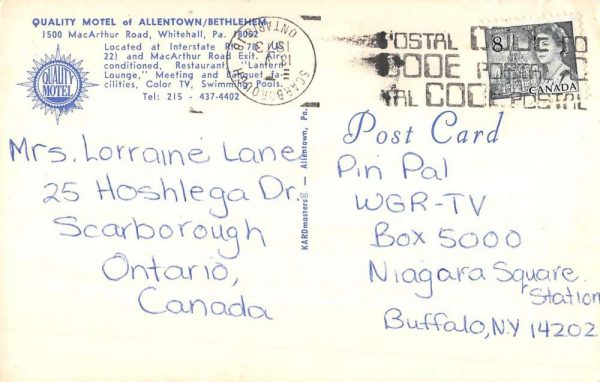 QUALITY MOTEL of ALLENTOWN/BETHLEHEM
1500 MacArthur Road, Whitehall, Pa. 18052
Located at Interstate Rt. 78 (US
22) and MacArthur Road Exit. Air-
conditioned, Restaurant, "Lantern
Lounge," Meeting and Banquet fa-
cilities, Color TV, Swimming Pools.
Tel: 215 - 437-4402
QUALITY
MOTEL
SCARBOROUGH
ONTARIO
POSTAL CODE
CODE POSTAL
CODE POSTAL
8
CANADA
KARDmasters® — Allentown, Pa.
Post Card
Mrs. Lorraine Lane
25 Hoshlega Dr.
Scarborough
Ontario,
Canada
Pin Pal
WGR-TV
Box 5000
Niagara Square
Station
Buffalo, NY 14202